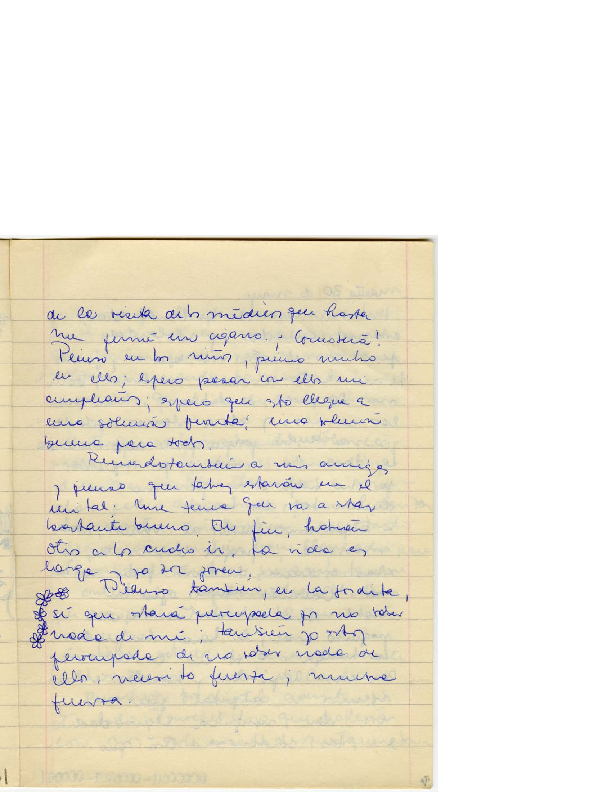 de la visita de los médicos que hasta
me fumé un cigarro. ¡ Como será!
Pienso en los niños, pienso mucho
en ellos; espero pasar con ellos mi
cumpleaños; espero que esto llegue a
una solución pronta; una solución
buena para todos.
Recuerdo también a mis amigas
y pienso que tal vez estarán en el
va a estar
bastante bueno. En fin, habrán
otros a los cuales ir, la vida es
larga y yo soy joven.
Pienso también, en la gordita,
sé que estará preocupada por no saber
nada de mí; también yo estoy
preocupada de no saber nada de
ella. necesito fuerza; mucha
fuerza.